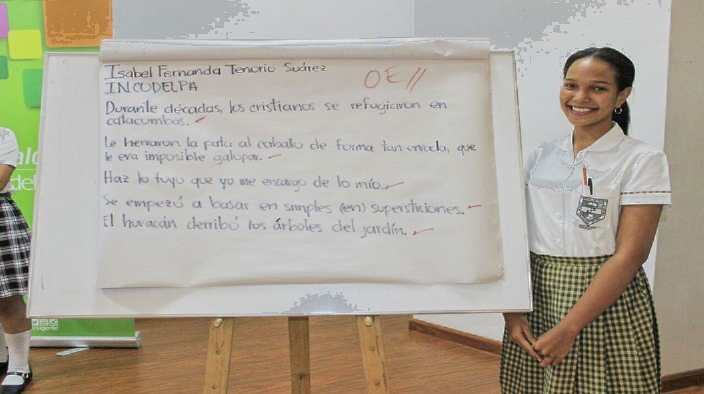 Isabel Fernanda Tenorio Suárez
OE//
INCODELPA
Durante décadas, los cristianos se refugiaron en
catacumbas.
Le herraron la pata al caballo de forma tan errada, que
le era imposible galopar.
Haz lo tuyo que yo me encargo de lo mío.
Se empezó a basar en simples (en) supersticiones.
El huracán derribó los árboles del jardín.